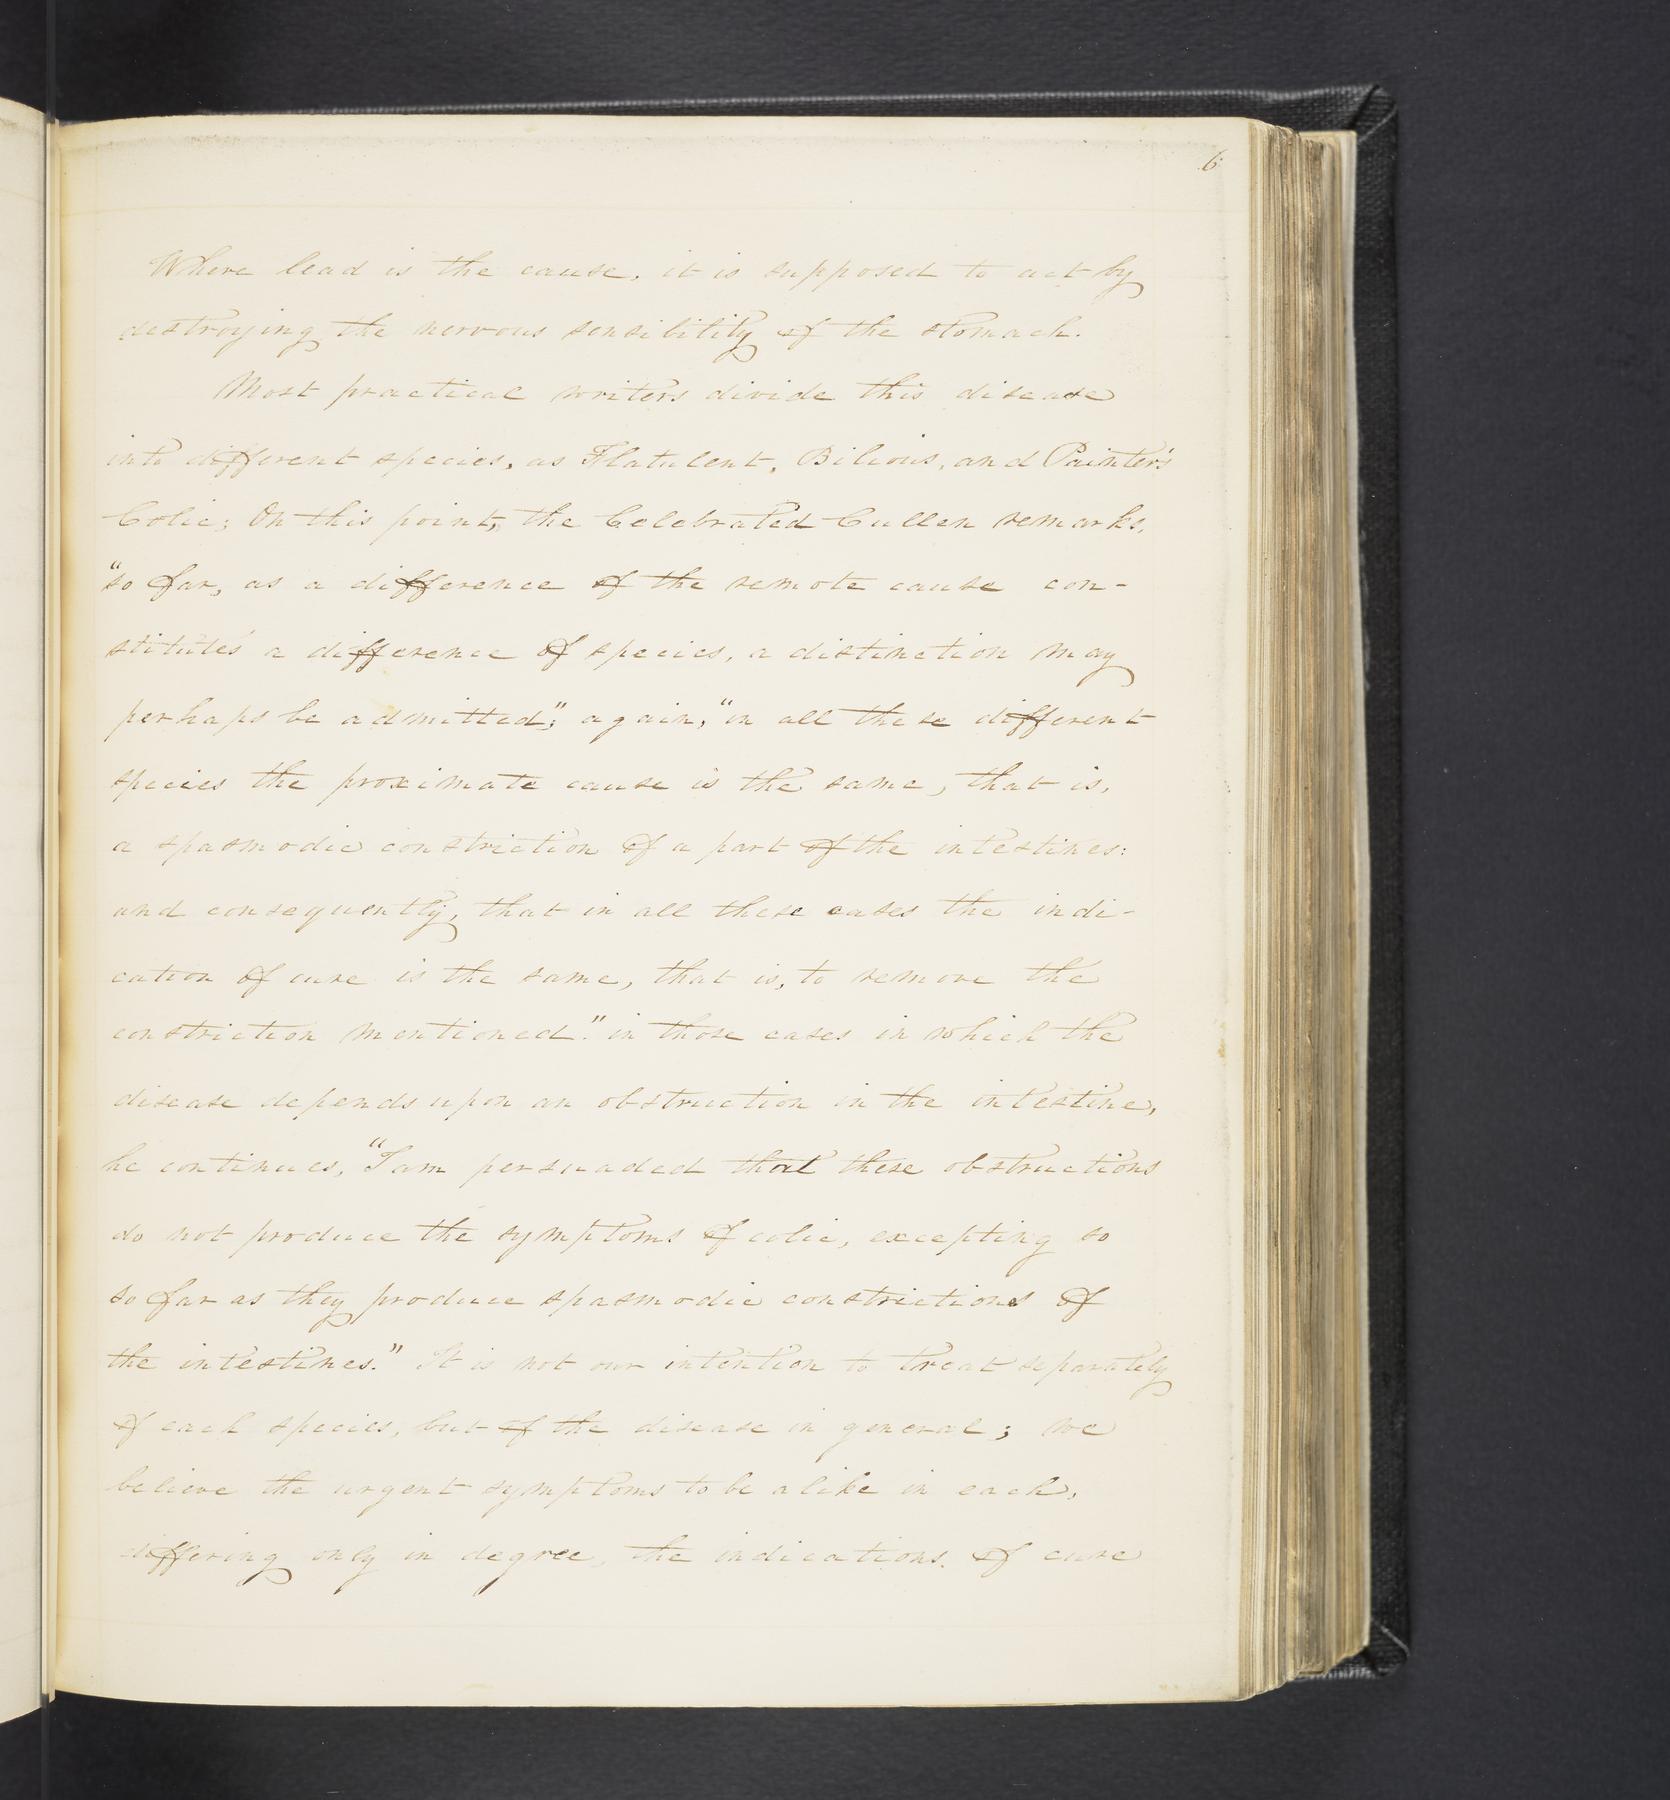 6
Where lead is the cause, it is supposed to act by
destroying the nervous sensibility of the stomach.
Most practical writers divide this disease
into different species, as Flatulent, Bilious, and Painter's
Colic; On this point, the Celebrated Cullen remarks,
"so far, as a difference of the remote cause con-
stitutes a difference of species, a distinction may
perhaps be admitted"; again, "in all these different
species the proximate cause is the same, that is,
a spasmodic constriction of a part of the intestines:
and consequently, that in all these cases the indi-
cation of cure is the same, that is, to remove the
constriction mentioned." in those cases in which the
disease depends upon an obstruction in the intestine,
he continues, "I am persuaded that these obstructions
do not produce the symptoms of colic, excepting so
so far as they produce spasmodic constrictions of
the intestines." It is not our intention to treat separately
of each species, but of the disease in general; we
believe the urgent symptoms to be alike in each,
differing only in degree, the indications of cure